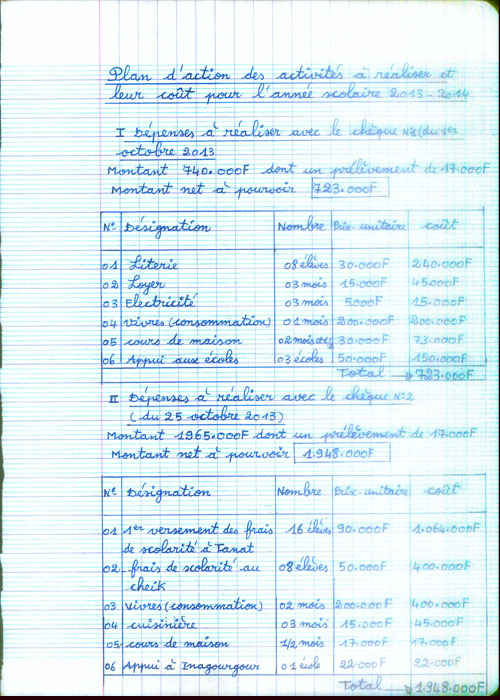 Plan d'action des activités à réaliser et
leur coût pour l'année scolaire 2013-2014
I Dépenses à réaliser avec le chèque N°1(du 1er
octobre 2013
Montant 740.000F dont un prélèvement de 17.000F
Montant net à pourvoir 723.000F
N° Désignation Nombre Prix-unitaire coût
01 Literie 08 élèves 30.000F 240.000F
02 Loyer 03 mois 15.000F 45000F
03 Electricité 03 mois 5000F 15.000F
04 vivres (consommation) 01 mois 200.000F 200.000F
05 cours de maison 02 mois 30.000F 73.000F
06 Appui aux écoles 03 écoles 50.000F 150.000F
Total → 723.000F
II Dépenses à réaliser avec le chèque N°2
(du 25 octobre 2013)
Montant 1965.000F dont un prélèvement de 17.000F
Montant net à pourvoir 1.948.000F
N° Désignation Nombre Prix-unitaire coût
01 1er versement des frais 16 élèves 90.000F 1.064.000F
de scolarité à Tanat
02 frais de scolarité au 08 élèves 50.000F 400.000F
cheik
03 vivres (consommation) 02 mois 200.000F 400.000F
04 cuisinière 03 mois 15.000F 45.000F
05 cours de maison 1/2 mois 17.000F 17.000F
06 Appui à Inagourgour 01 école 22.000F 22.000F
Total → 1.948.000F